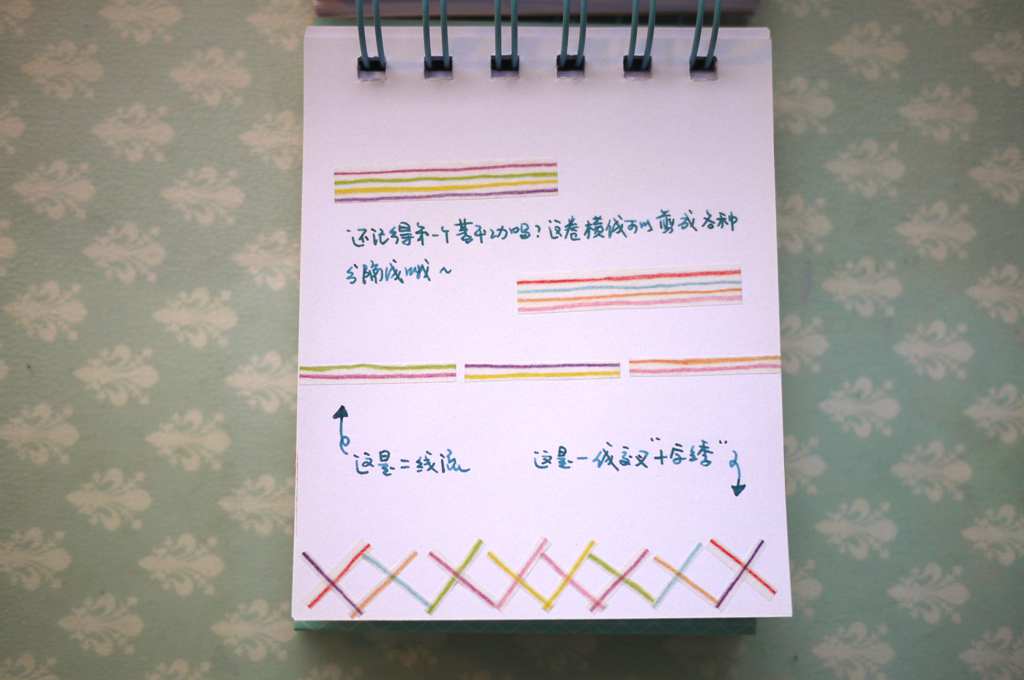 还记得第一个基本功吗？这卷横线可以剪成各种
分隔线哦～
这是二线流
这是一线交叉“十字绣”